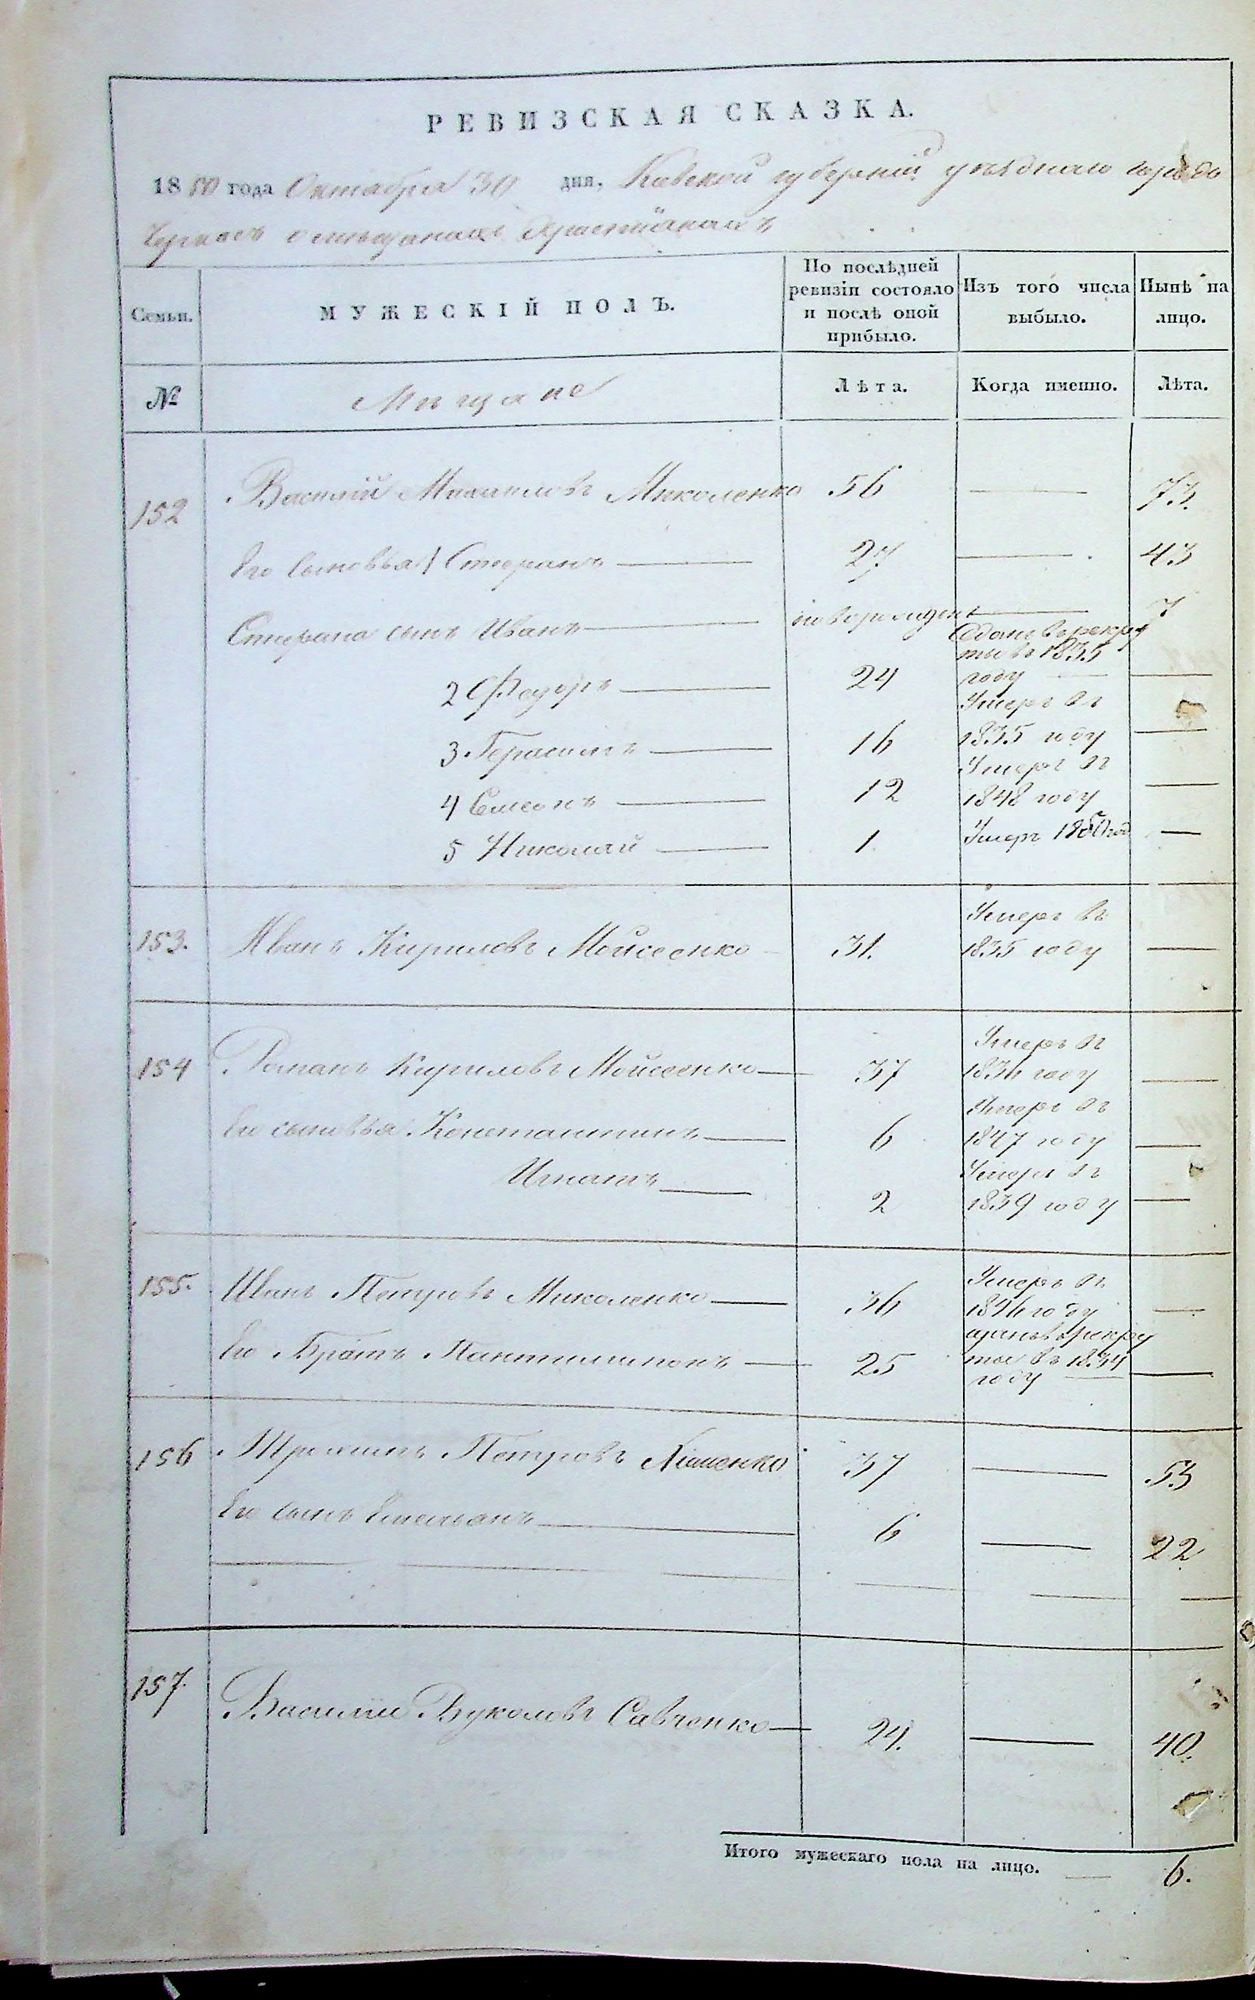 РЕВИЗСКАЯ СКАЗКА.
1850 года Октября 30 дня, Кіевской губерніи уѣзднаго города
Черкасъ о мещанахъ Христіанахъ
Семьи.
МУЖЕСКІЙ ПОЛЪ.
По послѣдней ревизіи состояло и послѣ оной прибыло.
Изъ того числа выбыло.
Нынѣ на лицо.
№
Мещане
Лѣта.
Когда именно.
Лѣта.
152 Василій Михаиловъ Миколенко 56 — 73.
Его сыновья 1 Стефанъ — 27 — 43
Стефана сынъ Иванъ — новорожденъ — 7
2 Федоръ — 24 Сданъ в рекруты въ 1835 году — —
3 Герасимъ — 16 Умеръ въ 1835 году —
4 Семенъ — 12 Умеръ въ 1848 году —
5 Николай — 1 Умеръ 1850 год —
153. Иванъ Кириловъ Мойсеенко 31. Умеръ въ 1835 году —
154 Романъ Кириловъ Мойсеенко — 37 Умеръ въ 1836 году —
Его сыновья Константинъ — 6 Умеръ въ 1847 году —
Игнатъ — 2 Умеръ въ 1839 году —
155. Иванъ Петровъ Миколенко — 36 Умеръ въ 1846 году —
Его Братъ Пантилимонъ — 25 рекруты въ 1834 году — —
156 Петровъ 37 — 53
Его сынъ Емельянъ — 6 — 22
157. Василій Вуколовъ Савченко — 24. — 40.
Итого мужескаго пола на лицо. — 6.